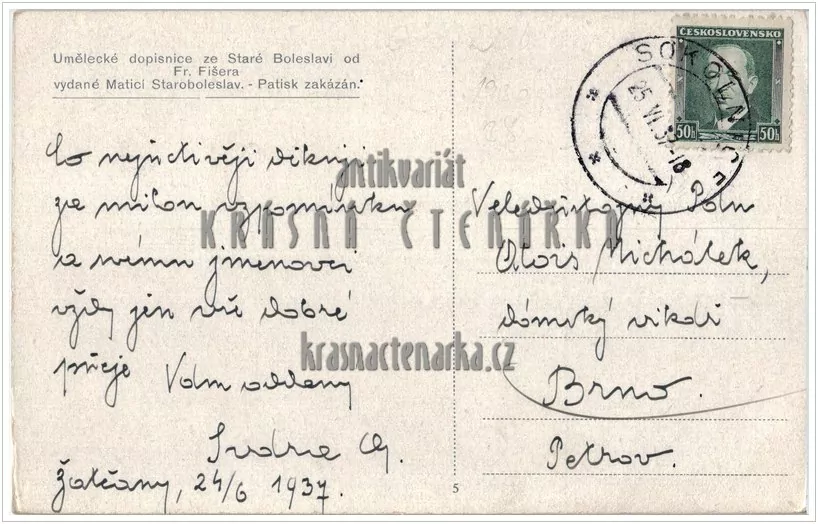 Umělecké dopisnice ze Staré Boleslavi od
Fr. Fišera
vydané Maticí Staroboleslav. - Patisk zakázán.
Co nejuctivěji děkuji
za milou vzpomínku
a svému jmenovci
vždy jen vše dobré
přeje Vám oddaný
Žatčany, 24/6 1937.
5
ČESKOSLOVENSKO
50h 50h
SOKOLNICE
25.VI.37-18
Veledůstojný Pán
Alois Michálek,
dómský vikář
Brno.
Petrov.
antikvariát
KRÁSNÁ ČTENÁŘKA
krasnactenarka.cz